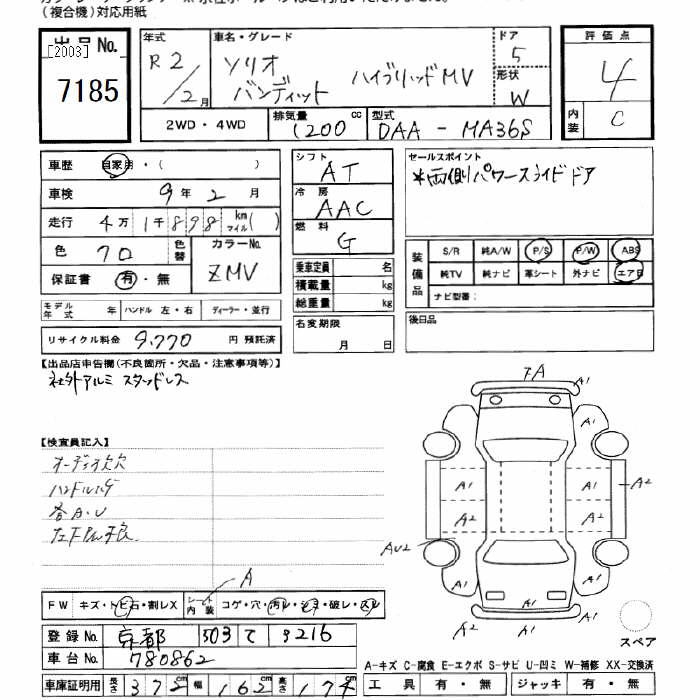 (複合機)対応用紙
出品No.
[2003]
7185
年式
R2/2月
車名・グレード
ソリオ
バンディット ハイブリッドMV
ドア
5
形状
W
評価点
4
内装
C
2WD・4WD
排気量 1200 cc
型式 DAA-MA36S
車歴 自家用・( )
車検 9年2月
走行 4万1千898 km マイル( )
色 70 色替
カラーNo. ZMV
保証書 有・無
モデル年式 年 ハンドル 左・右 ディーラー・並行
リサイクル料金 9,770 円 預託済
シフト AT
冷房 AAC
燃料 G
乗車定員 名
積載量 kg
総重量 kg
名変期限 月 日
セールスポイント
*両側パワースライドドア
装備品
S/R 純A/W P/S P/W ABS
純TV 純ナビ 革シート 外ナビ エアB
ナビ型番:
後日品
【出品店申告欄(不良箇所・欠品・注意事項等)】
社外アルミ スタッドレス
【検査員記入】
オーディオ欠
ハンドルスレ
各A・U
FA
A1
A1
A1
A1
A1
A2
A2
A2
AU2
A1
A1
A1
A2
A1
A
FW キズ・トビ石・割レX シート内装 コゲ・穴・汚レ・シミ・破レ・スレ
登録No. 京都 503 て 3216
車台No. 780862
車庫証明用 長さ 372 cm 幅 162 cm 高さ 174 cm
スペア
A-キズ C-腐食 E-エクボ S-サビ U-凹ミ W-補修 XX-交換済
工具 有・無 ジャッキ 有・無